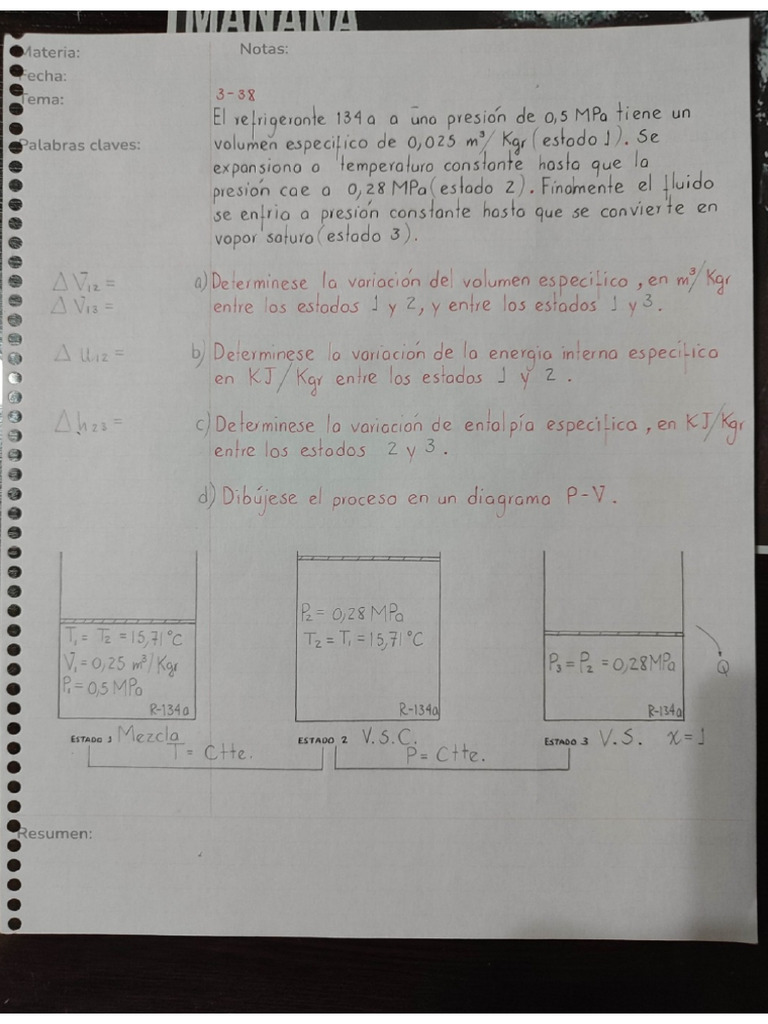 MAÑANA
Materia:
Notas:
Fecha:
Tema:
3-38
El refrigerante 134a a una presión de 0,5 MPa tiene un
Palabras claves:
volumen especifico de 0,025 m³/Kgr (estado 1). Se
expansiona a temperatura constante hasta que la
presión cae a 0,28 MPa (estado 2). Finalmente el fluido
se enfria a presión constante hasta que se convierte en
vapor saturo (estado 3).
Δ V̄₁₂ =
a) Determinese la variación del volumen especifico, en m³/Kgr
Δ V̄₁₃ =
entre los estados 1 y 2, y entre los estados 1 y 3.
Δ u₁₂ =
b) Determinese la variación de la energia interna especifica
en KJ/Kgr entre los estados 1 y 2.
Δh₂₃ =
c) Determinese la variación de entalpía especifica, en KJ/Kgr
entre los estados 2 y 3.
d) Dibújese el proceso en un diagrama P-V̄.
T₁ = T₂ = 15,71 °C
V̄₁ = 0,25 m³/Kgr
P₁ = 0,5 MPa
R-134a
P₂ = 0,28 MPa
T₂ = T₁ = 15,71 °C
R-134a
P₃ = P₂ = 0,28 MPa
Q
R-134a
ESTADO 1 Mezcla
ESTADO 2 V.S.C.
ESTADO 3 V.S. x = 1
T = Ctte.
P = Ctte.
Resumen: